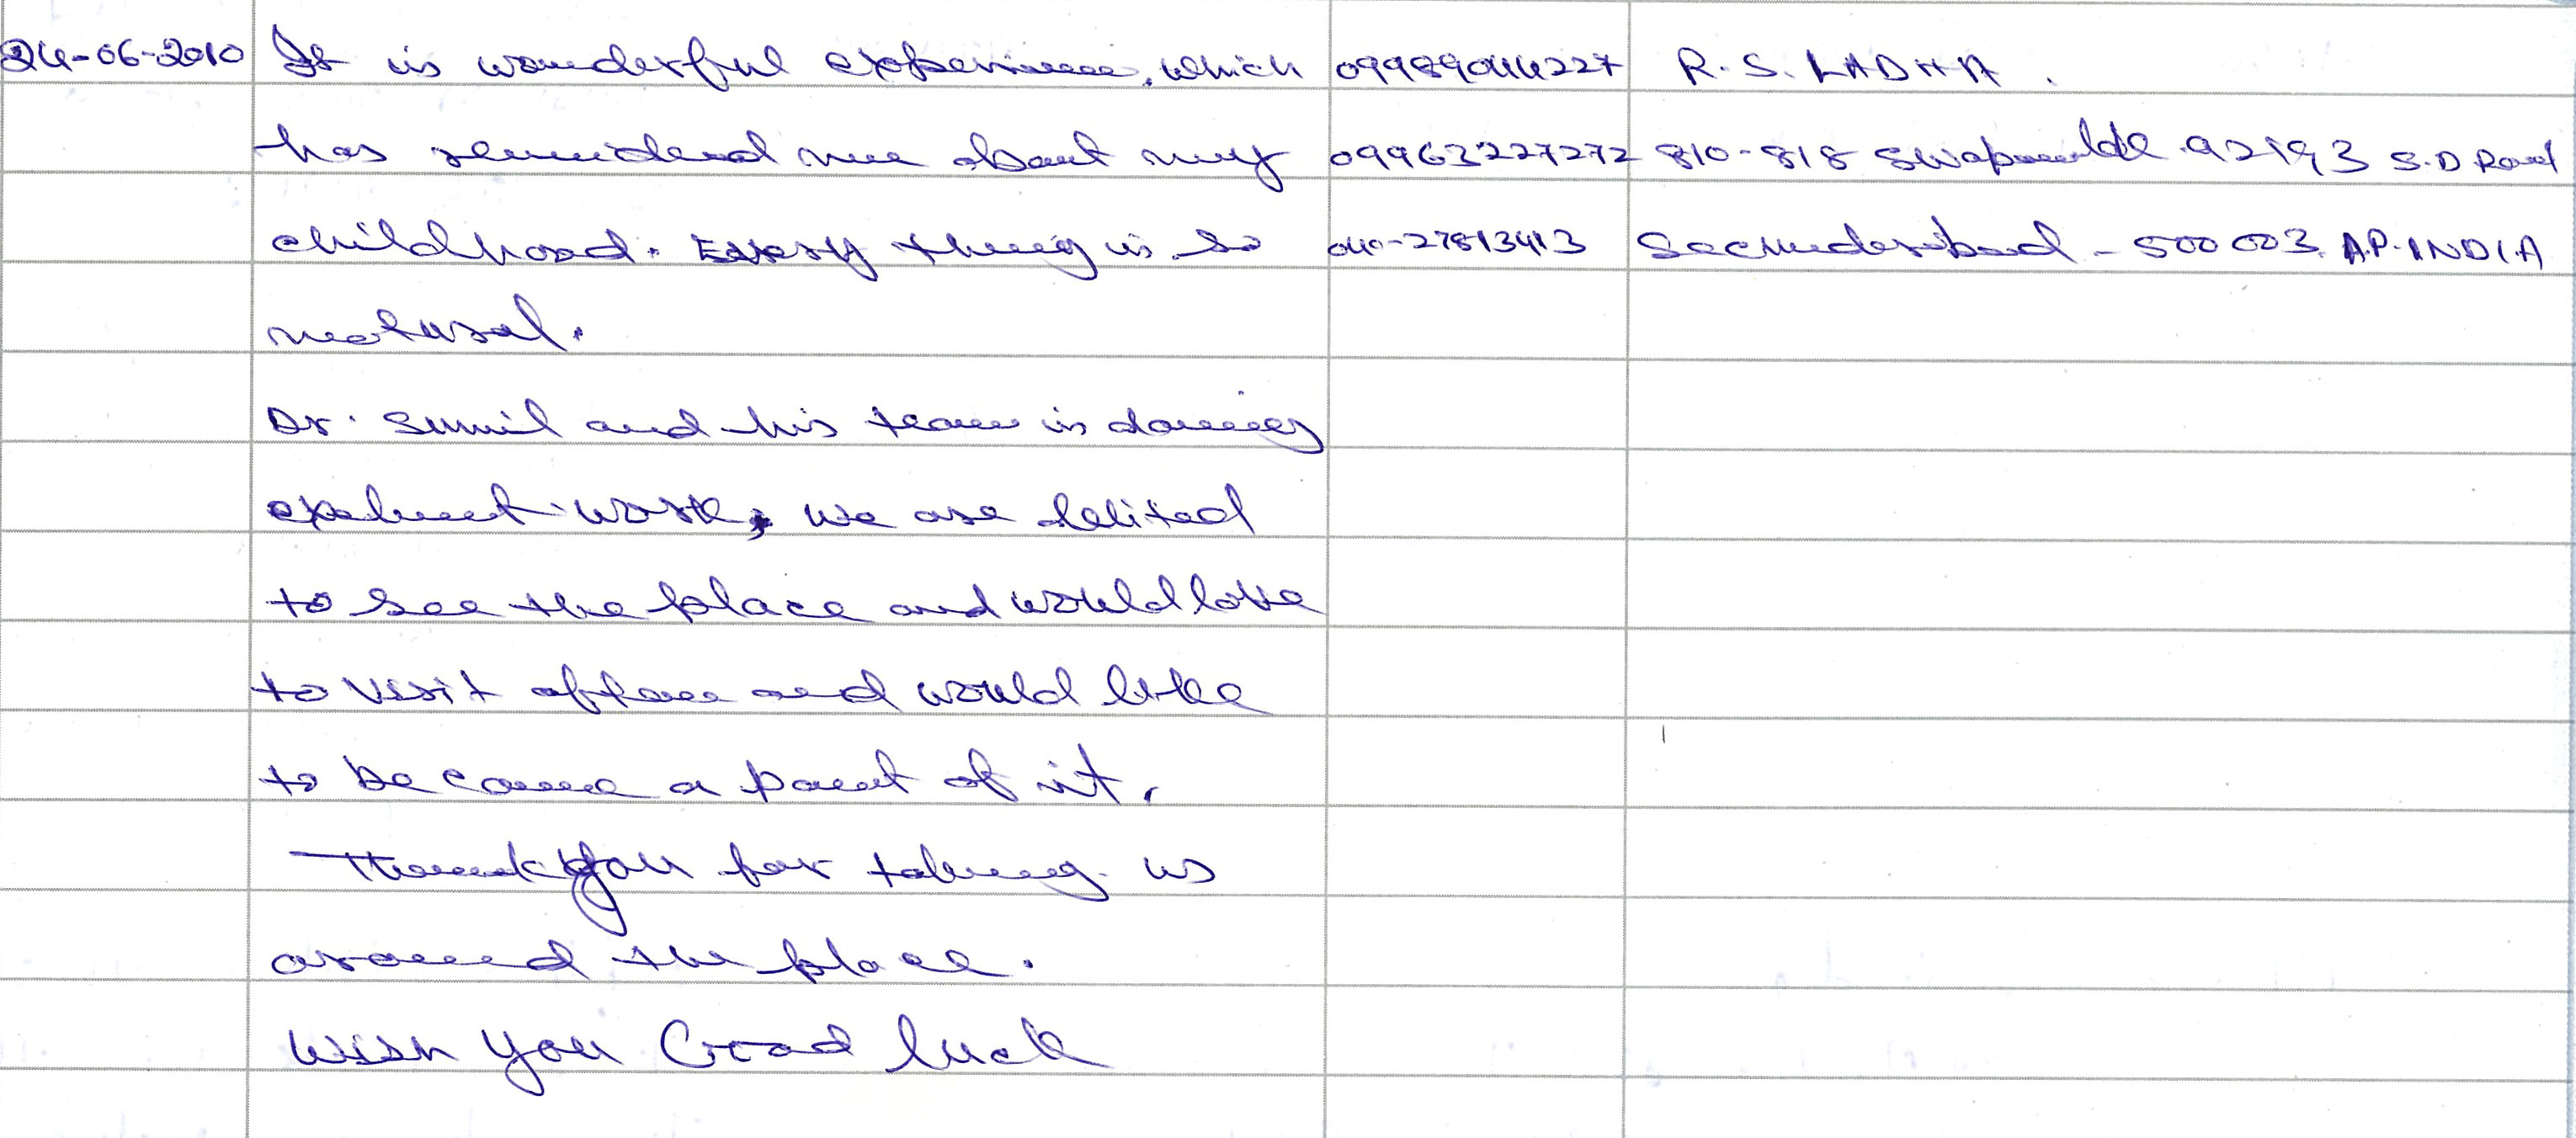 24-06-2010 It is wonderful experience, which 09989044227 R. S. LADHA.
has remindend me about my 09963227272 810-818 92193 S.D Road
childhood. Every thing is so 040-27813413 Secunderabad - 500 003. A.P. INDIA
natural.
Dr. Sunil and his team is doing
exelent work, we are delited
to see the place and would love
to visit often and would like
to be come a part of it.
Thank you for taking us
around the place.
Wish you Good luck